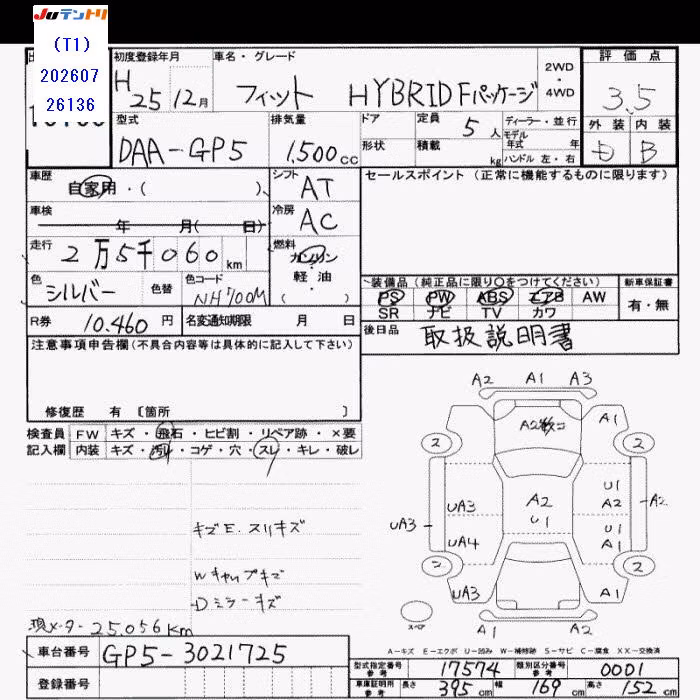 JUテントリ
(T1)
202607
26136
初度登録年月
H
25 12月
車名・グレード
フィット HYBRID Fパッケージ
2WD
・
4WD
評価点
3.5
外装 内装
B
型式
DAA-GP5
排気量
1,500cc
ドア
形状
定員 5人
積載 kg
ディーラー・並行
モデル
年式 年
ハンドル 左・右
車歴
自家用・( )
シフト
AT
車検
年 月( 日)
冷房
AC
走行
2万5千060km
燃料
ガソリン
・
軽・油
( )
色
シルバー
色替
色コード
NH700M
R券 10,460円
名変通知期限 月 日
セールスポイント(正常に機能するものに限ります)
装備品(純正品に限り○をつけてください)
PS PW ABS エアB AW
SR ナビ TV カワ
新車保証書
有・無
後日品 取扱説明書
注意事項申告欄(不具合内容等は具体的に記入して下さい)
修復歴 有 [箇所 ]
検査員 FW キズ・飛石・ヒビ割・リペア跡・×要
記入欄 内装 キズ・汚れ・コゲ・穴・スレ・キレ・破レ
キズE.スリキズ
Wキャップキズ
Dミラーキズ
現メーター25,056Km
A2 A1 A3
A2数コ A1
2 2
UA3 A2 U1 U1 A2 A2
UA3 UA4 U1 A1
2 2
UA3 A1
スペア
A1 A1
A-キズ E-エクボ U-凹み W-補修跡 S-サビ C-腐食 XX-交換済
車台番号 GP5-3021725
登録番号
型式指定番号
参考
17574
類別区分番号
参考
0001
車庫証明用
参考
長さ 395cm 幅 169cm 高さ 152cm